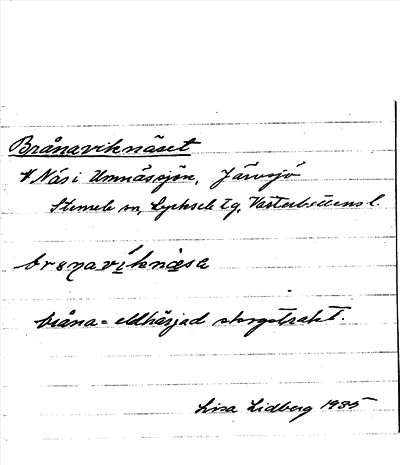 Brånaviknäset
Näs i Umnässjön, Järvsjö
Stensele sn, Lycksele lg, Västerbottens l.
bråna = eldhärjad skogstrakt.
Lisa Lidberg 1935